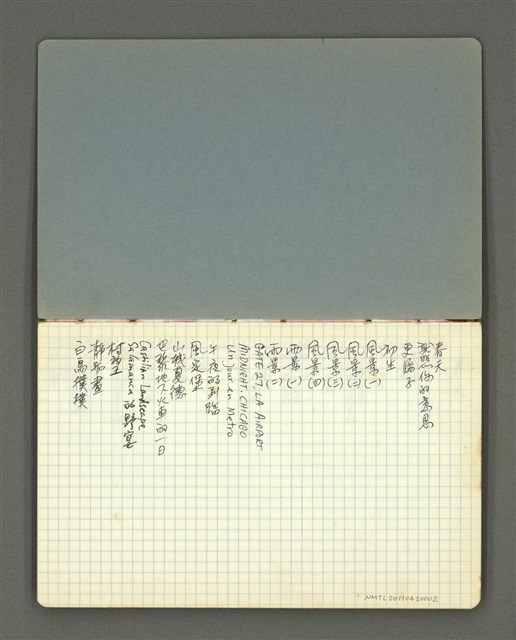 春天
照您你的意思
更漏子
初生
風景(一)
風景(二)
風景(三)
風景(四)
雨景(一)
雨景(二)
GATE 27, LA AIRPORT
MIDNIGHT, CHICAGO
Un jour en Metro
午夜的
風定堡
山城夏德
巴黎地下火車的一日
Castilian Landscape
Salamanca的野宴
村野
靜物畫
白鳥撲撲
NMTL20110420002